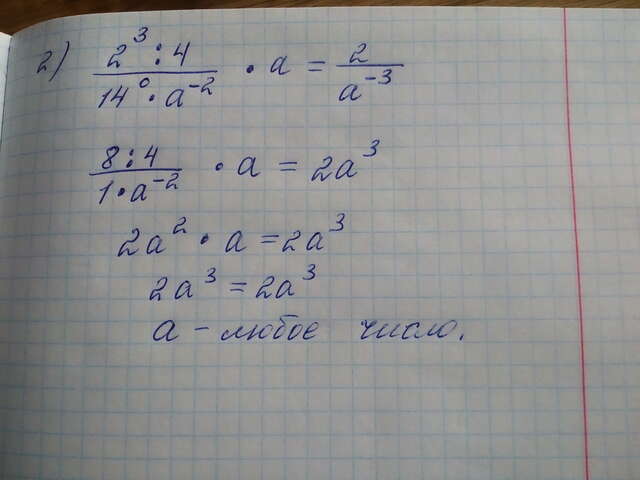 2) \frac{2^3 : 4}{14^0 \cdot a^{-2}} \cdot a = \frac{2}{a^{-3}}
\frac{8 : 4}{1 \cdot a^{-2}} \cdot a = 2a^3
2a^2 \cdot a = 2a^3
2a^3 = 2a^3
a - любое число.